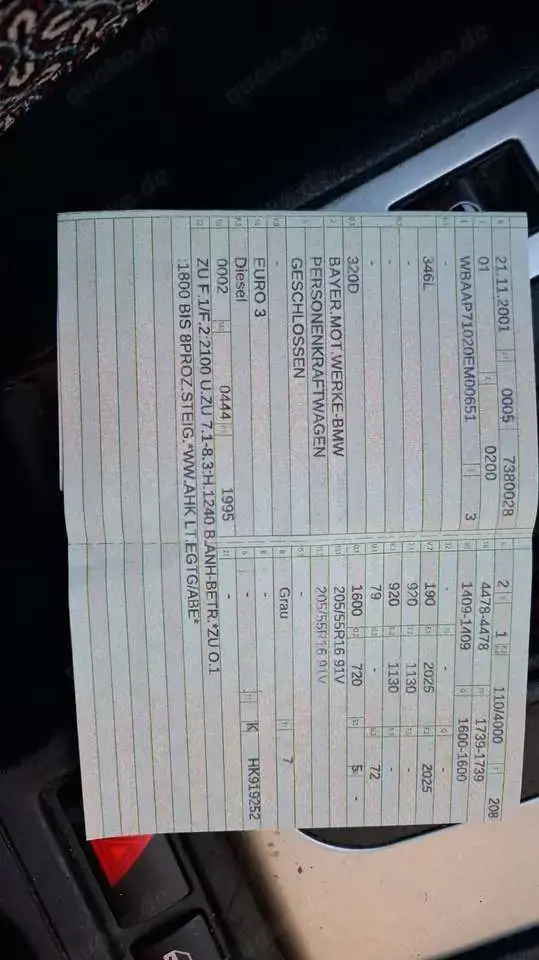 21.11.2001 0005 7380028
01 0200
WBAAP71020EM00651 3
- -
346L
- -
- -
-
320D
BAYER.MOT.WERKE-BMW
PERSONENKRAFTWAGEN
GESCHLOSSEN
-
EURO 3
Diesel
0002 0444 1995
ZU F.1/F.2:2100 U.ZU 7.1-8.3:H.1240 B.ANH-BETR.*ZU O.1
:1800 BIS 8PROZ.STEIG.*WW.AHK LT.EGTG/ABE*
2 1 110/4000 208
4478-4478 1739-1739
1409-1409 1600-1600
- -
190 2025 2025
920 1130 -
920 1130 -
79 - 72
1600 720 5 -
205/55R16 91V
205/55R16 91V
-
Grau 7
-
- K HK919252
-
quoka.de
quoka.de
quoka.de